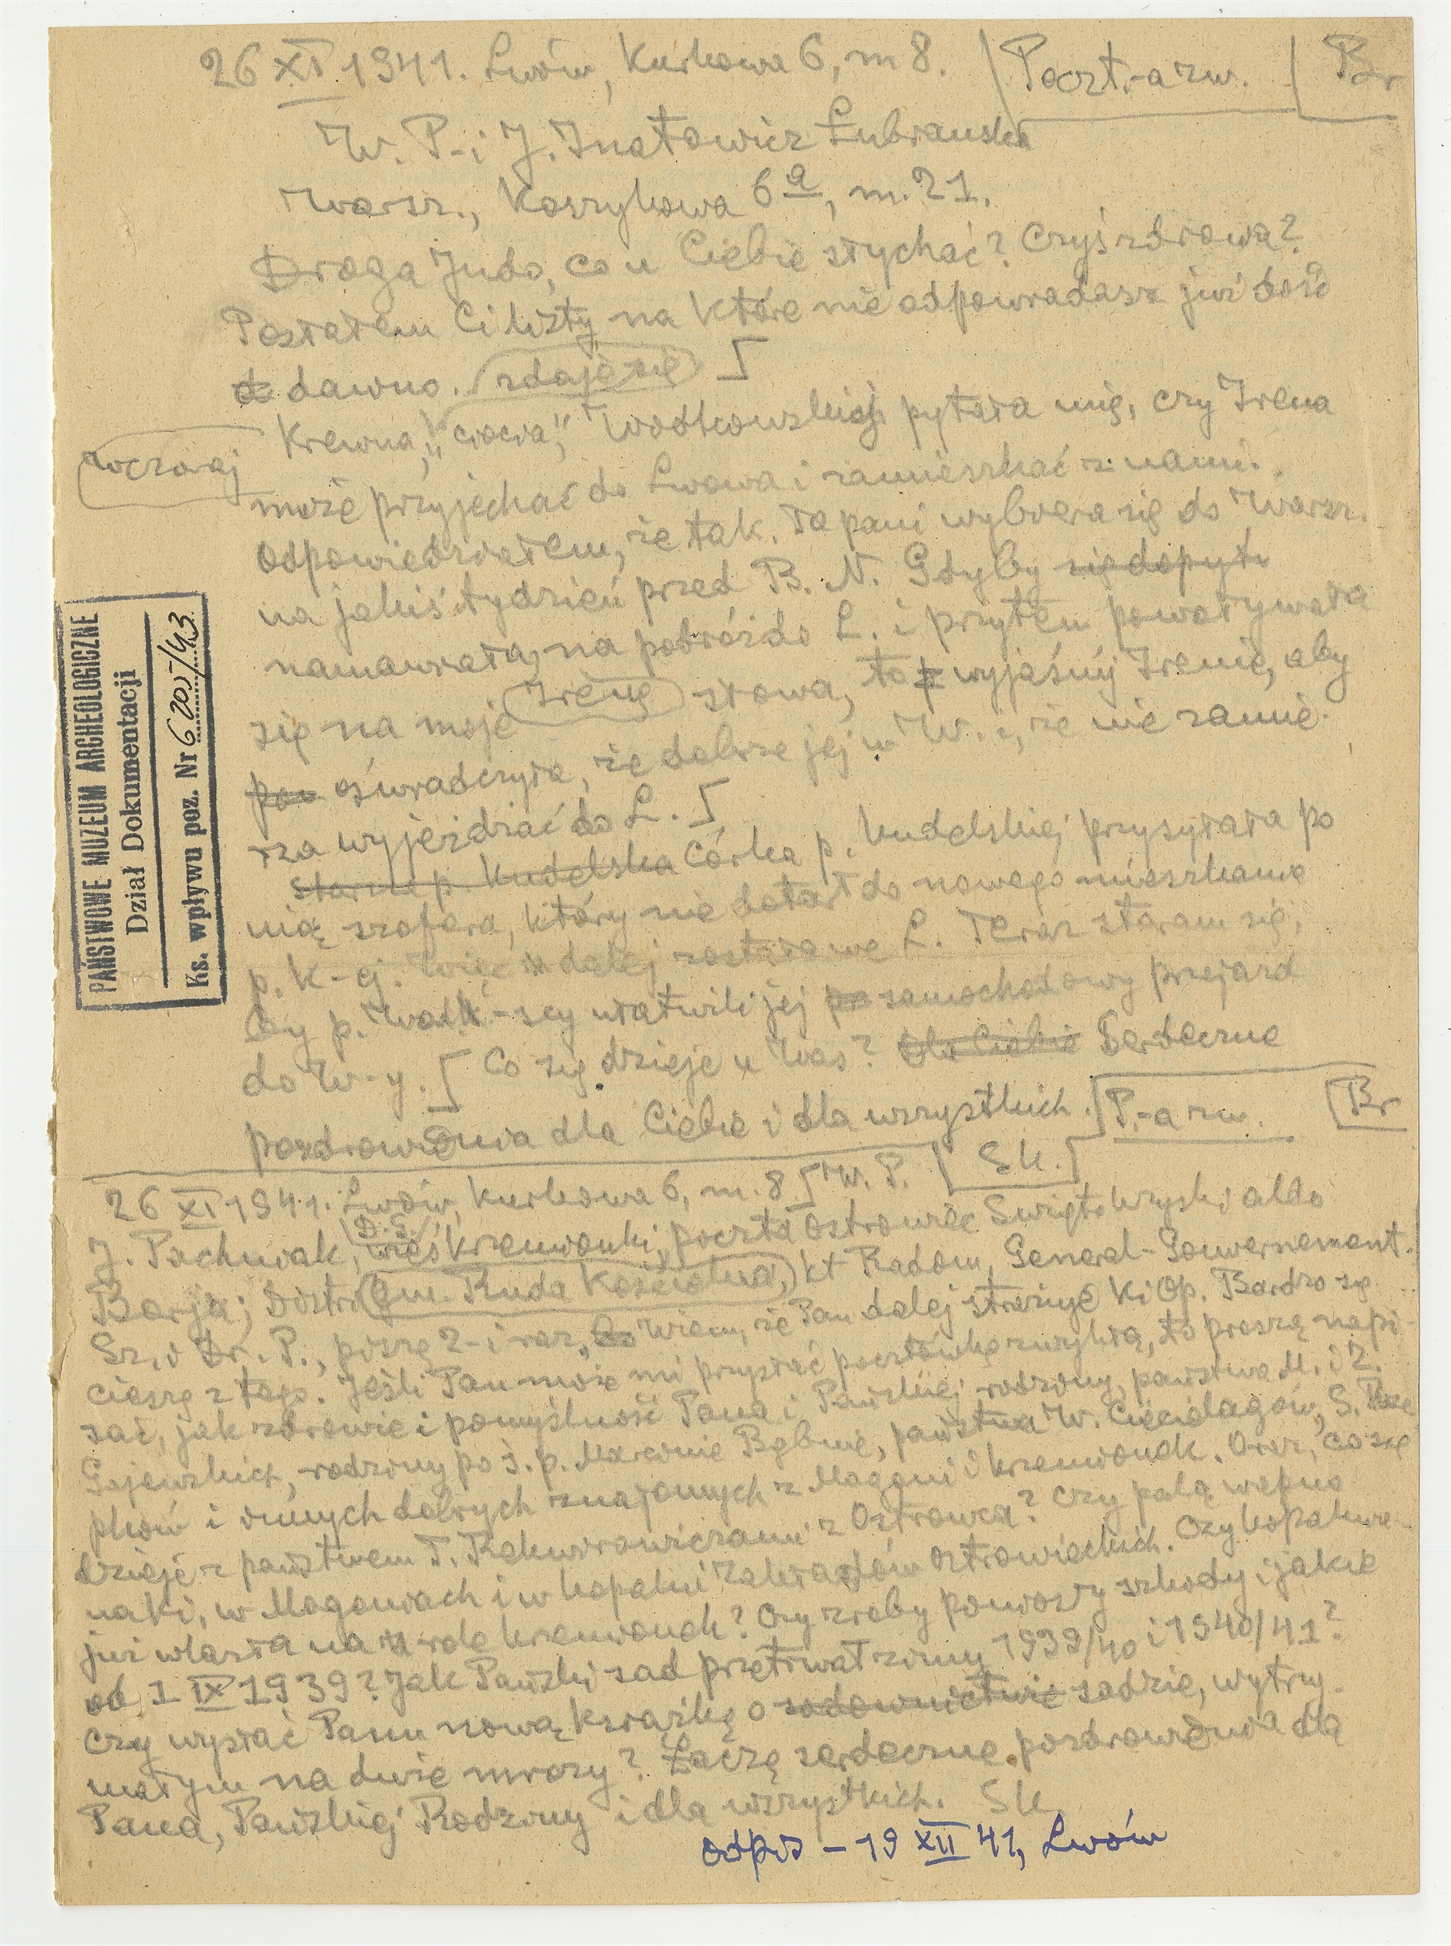 26 XI 1941. Lwów, Kurkowa 6, m 8. Poczt.-a zw. Br
W. P-i J. Inatowicz Łubiańska
Warsz., Koszykowa 6a, m. 21.
Droga Judo, co u Ciebie słychać? Czyś zdrowa?
Posłałem Ci listy, na które nie odpowiadasz już dość
dawno. zdaje się
Krewna, „ciocia", Wodkowskiej pytała mię, czy Irena
wczoraj
może przyjechać do Lwowa i zamieszkać z nami.
Odpowiedziałem, że tak. Ta pani wybiera się do Warsz.
na jakiś tydzień przed B. N. Gdyby się dopyt
namawiała, na podróż do L. i przytem powoływała
się na moje Irenę słowa, to wyjaśnij Irenie, aby
oświadczyła, że dobrze jej w W., że nie zamie-
rza wyjeżdżać do L.
Starsza p. Kudelska Córka p. Kudelskiej przysyłała po
nią szofera, który nie dotarł do nowego mieszkania
p. K-ej. Więc dalej zostanie L. Teraz staram się,
by p. Wodk-scy ułatwili jej samochodowy przejazd
do W-y. Co się dzieje u Was? Dla Ciebie Serdeczne
pozdrowienia dla Ciebie i dla wszystkich. P.-a zw. Br
Sk.
26 XI 1941. Lwów, Kurkowa 6, m. 8 W. P.
J. Pachniak, D. G. wieś Krzemionki, poczta Ostrowiec Świętokrzyski albo
Borja; Distri gm. Ruda Kościelna, kt Radom, General-Gouvernement.
Sz. i Dr. P., piszę 2-i raz, Wiem, że Pan dalej strażuje Ki Op. Bardzo się
cieszę z tego. Jeśli Pan może mi przysłać pocztówkę zwykłą, to proszę napi-
sać, jak zdrowie i pomyślność Pana i Pańskiej rodziny, państwa M. i Z.
Gajewskich, rodziny po ś. p. Marcinie Bębnie, państwa W. Cieciolągów, S. Rze
pków i innych dobrych znajomych z Magoni i Krzemionek. Oraz, co się
dzieje z państwem T. Rekwirowiczami z Ostrowca? Czy palą wapno
naki, w Magoniach i w kopalni Zakładów Ostrowieckich. Czy kopalnia
już wlazła na rolę Krzemionek? Czy zrobiły pomiary szkody i jakie
od 1 IX 1939? Jak Pański sad przetrwał zimy 1939/40 i 1940/41?
Czy wysłać Panu nową książkę o sadownictwie sadzie, wytrzy-
małym na duże mrozy? Łączę serdeczne pozdrowienia dla
Pana, Pańskiej Rodziny i dla wszystkich. Sk
Odpis – 19 XII 41, Lwów
PAŃSTWOWE MUZEUM ARCHEOLOGICZNE
Dział Dokumentacji
Ks. wpływu poz. Nr 6205/43